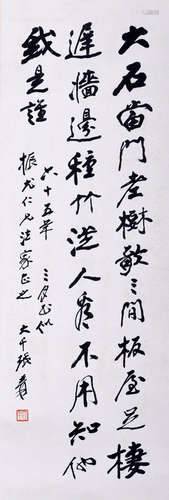 大石當門老樹敧三間板屋足棲
遲牆邊種竹從人看不用知他
我是誰
六十五年三月
仁兄法家正之 大千張爰